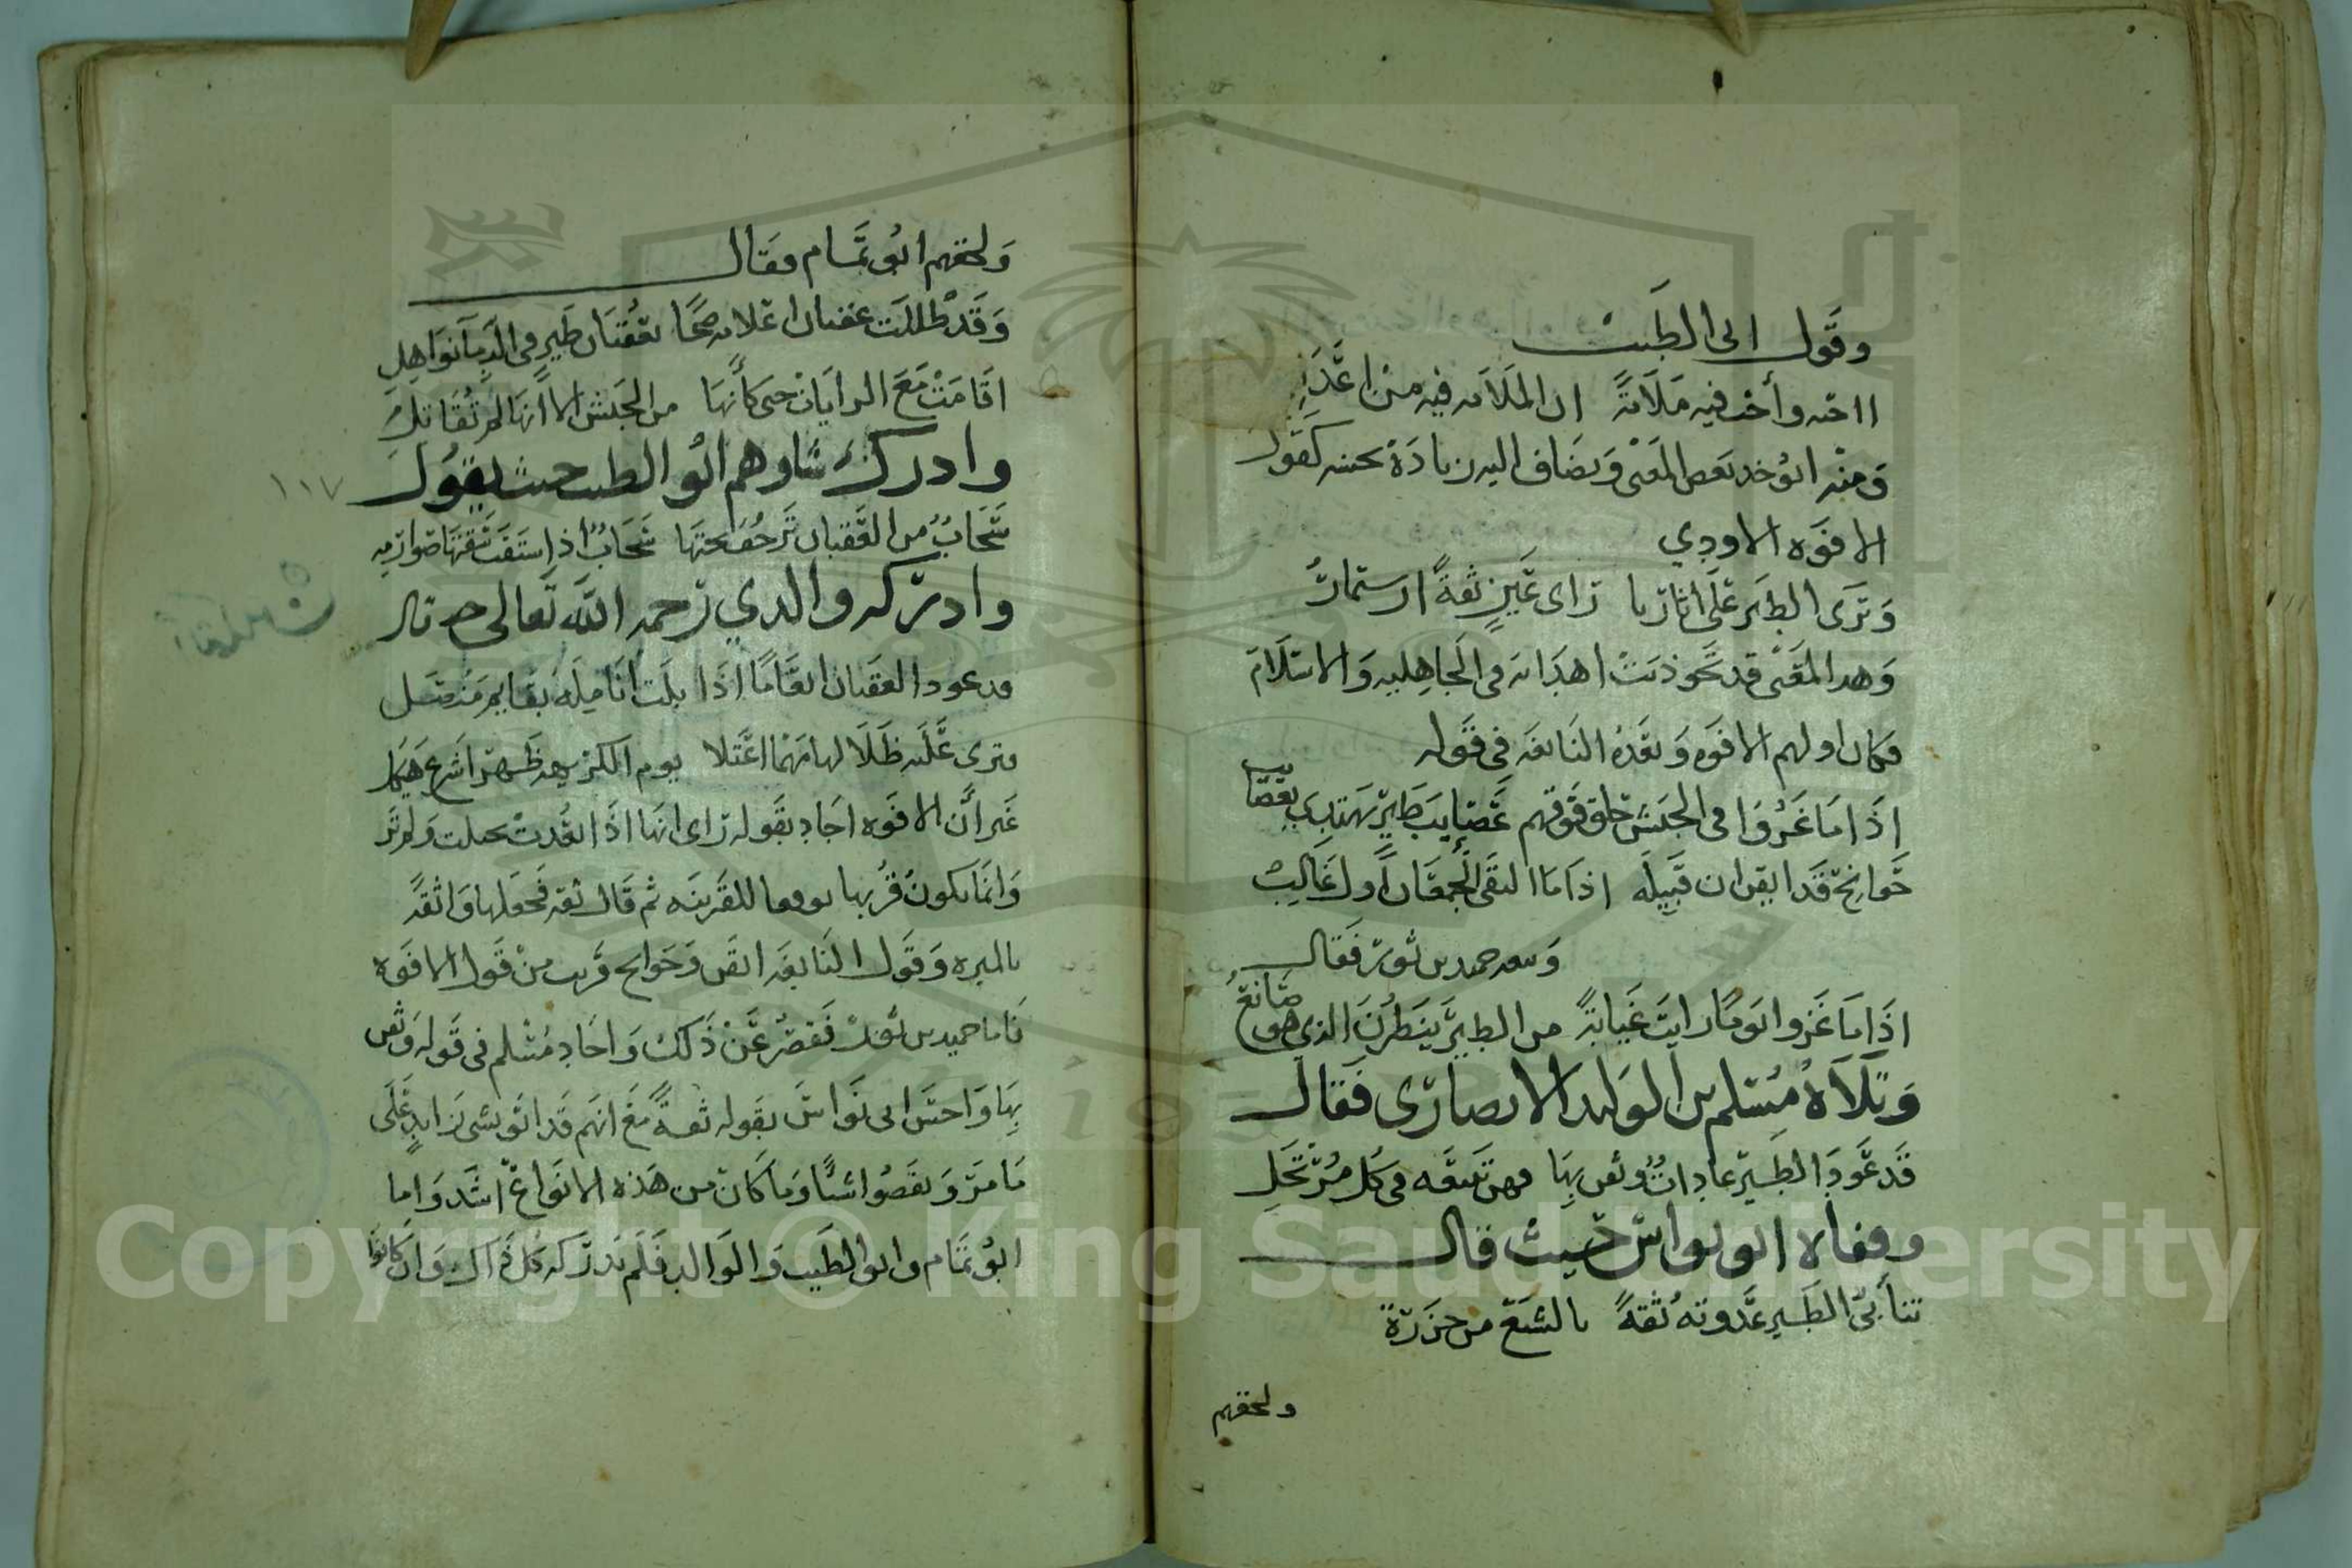 وقول ابى الطيب
ااحبه وأحب فيه ملامة ان الملامه فيه من اعدائه
ومنه ان يوخد بعض المعنى ويضاف اليه زيادة تحسنه كقول
الافوه الاودي
وترى الطير على اثارنا راى عين ثقة ان ستمار
وهدا المعنى قد تجوذبت اهدابه فى الجاهليه والاسلام
فكان اولهم الافوه وبعده النابغه فى قوله
اذا ما غزوا فى الجيش حلق فوقهم عصايب طير تهتدي بعصايب
جوانح قد ايقن ان قبيله اذا ما التقى الجمعان اول غالب
وتبعه حميد بن ثور فقال
اذا ما غزوا يوما رايت غيابة من الطير ينظرن الذي هو صانع
وتلاه مسلم بن الوليد الانصارى فقال
قد عود الطير عادات وثقن بها فهن تتبعه فى كل مرتحل
وقفاه ابو نواس حيث قال
تتأبى الطير غدوته ثقة بالشبع من جزره
ولحقهم
ولحقهم ابو تمام فقال
وقد ظللت عقبان اعلامه ضحا بعقبان طير فى الدما نواهل
اقامت مع الرايات حتى كأنها من الجيش الا انها لم تقاتل
وادرك شاوهم ابو الطيب حيث يقول
١١٧
سحاب من العقبان ترحف تحتها سحاب اذ استقت سقتها صوارمه
وادركه والدي رحمه الله تعالى حيث قال
وترى عليه ظللا لها مهما اعتلا يوم الكريهه ظهر اشرع هيكل
غير ان الافوه اجاد بقوله راى انها اذا ابعدت تخيلت ولم تر
وانما يكون قربها توقعا للفريسه ثم قال ثقه فجعلها واثقه
بالميره وقول النابغه ايقن وجوانح قريب من قول الافوه
فاما حميد بن ثور فقصر عن ذلك واجاد مسلم فى قوله وثقن
بها واحسن ابى نواس بقوله ثقة مع انهم قد اتو بشى زايد على
ما مر ونقصوا شيئا وما كان من هذه الانواع اشد واما
ابو تمام وابو الطيب والوالد فلم يدركه كل ذاك وان كانوا
Copyright © King Saud University